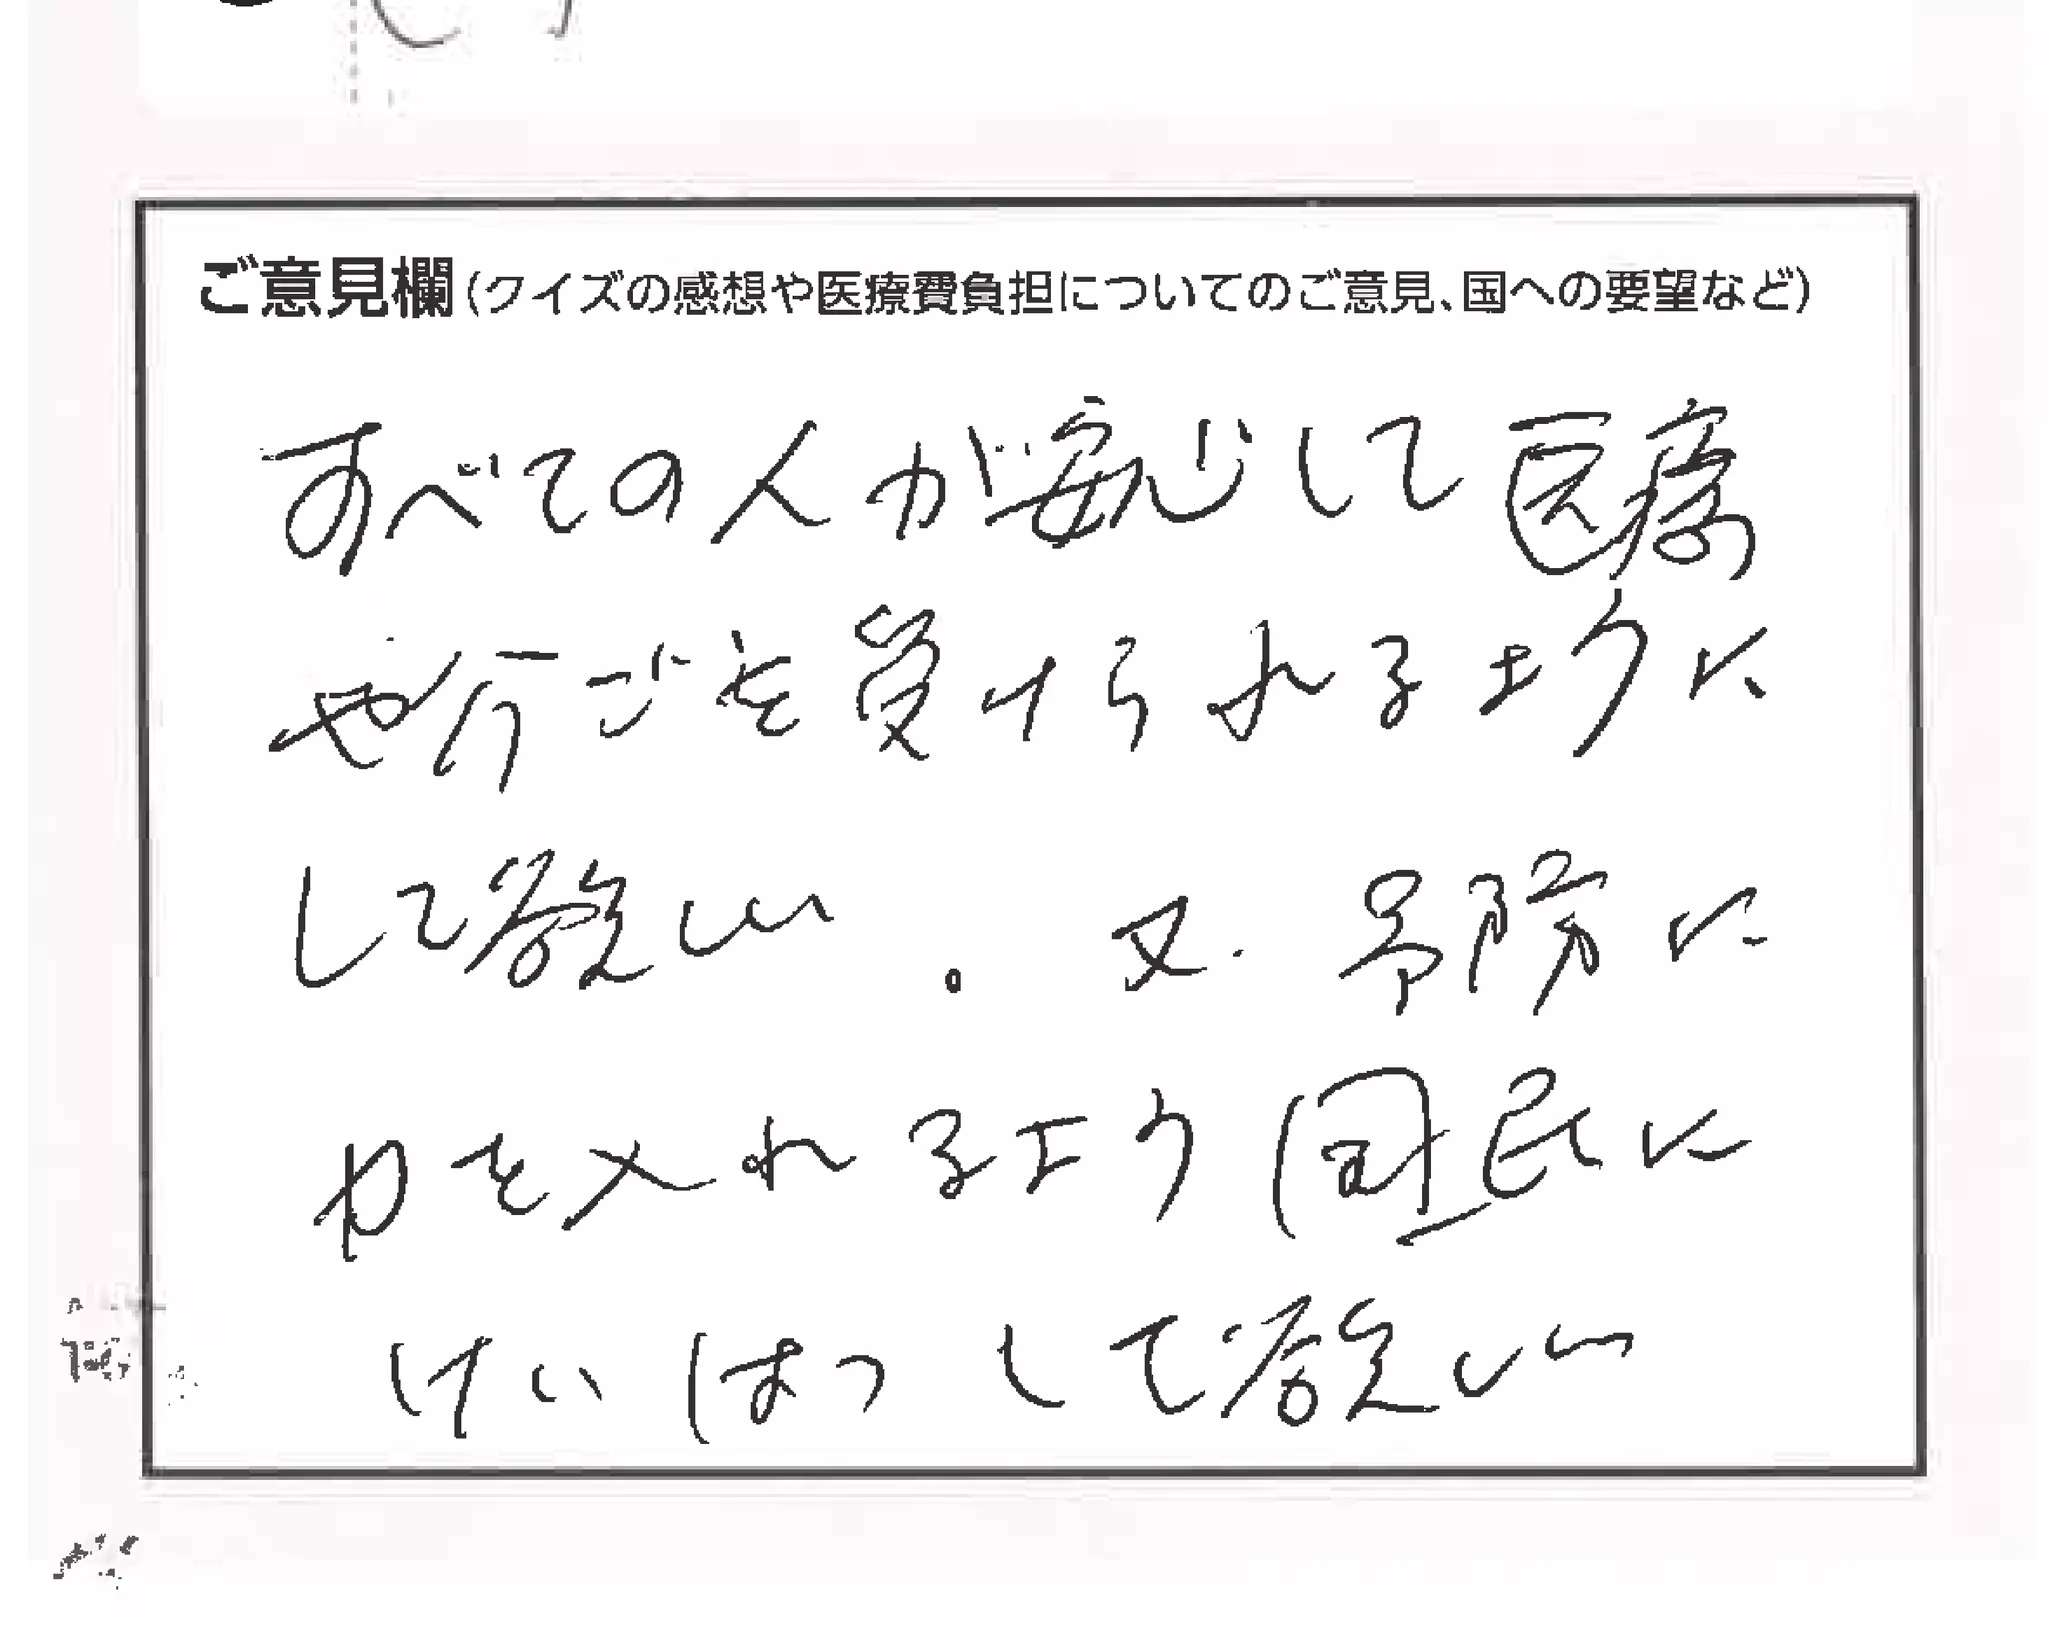 ご意見欄(クイズの感想や医療費負担についてのご意見、国への要望など)
すべての人が安心して医療
や介ごを受けられるように
して欲しい。又、予防に
力を入れるよう国民に
けいはつして欲しい